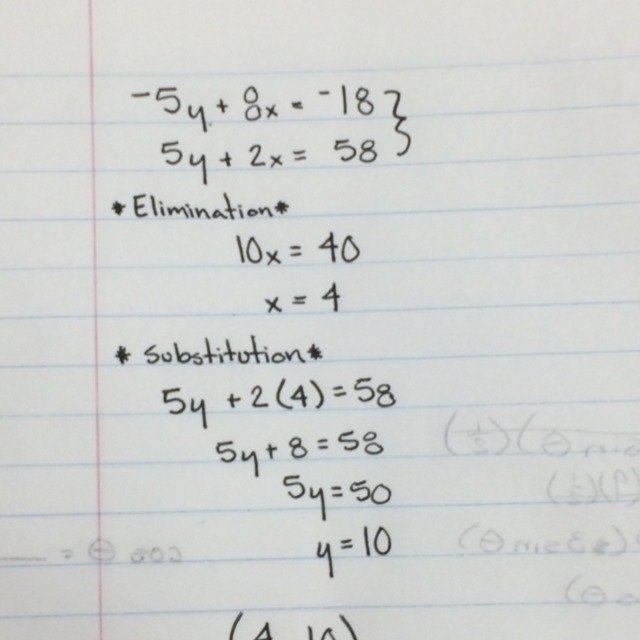 -5y + 8x = -18 }
5y + 2x = 58
* Elimination *
10x = 40
x = 4
* Substitution *
5y + 2(4) = 58
5y + 8 = 58
5y = 50
y = 10
(4, 10)